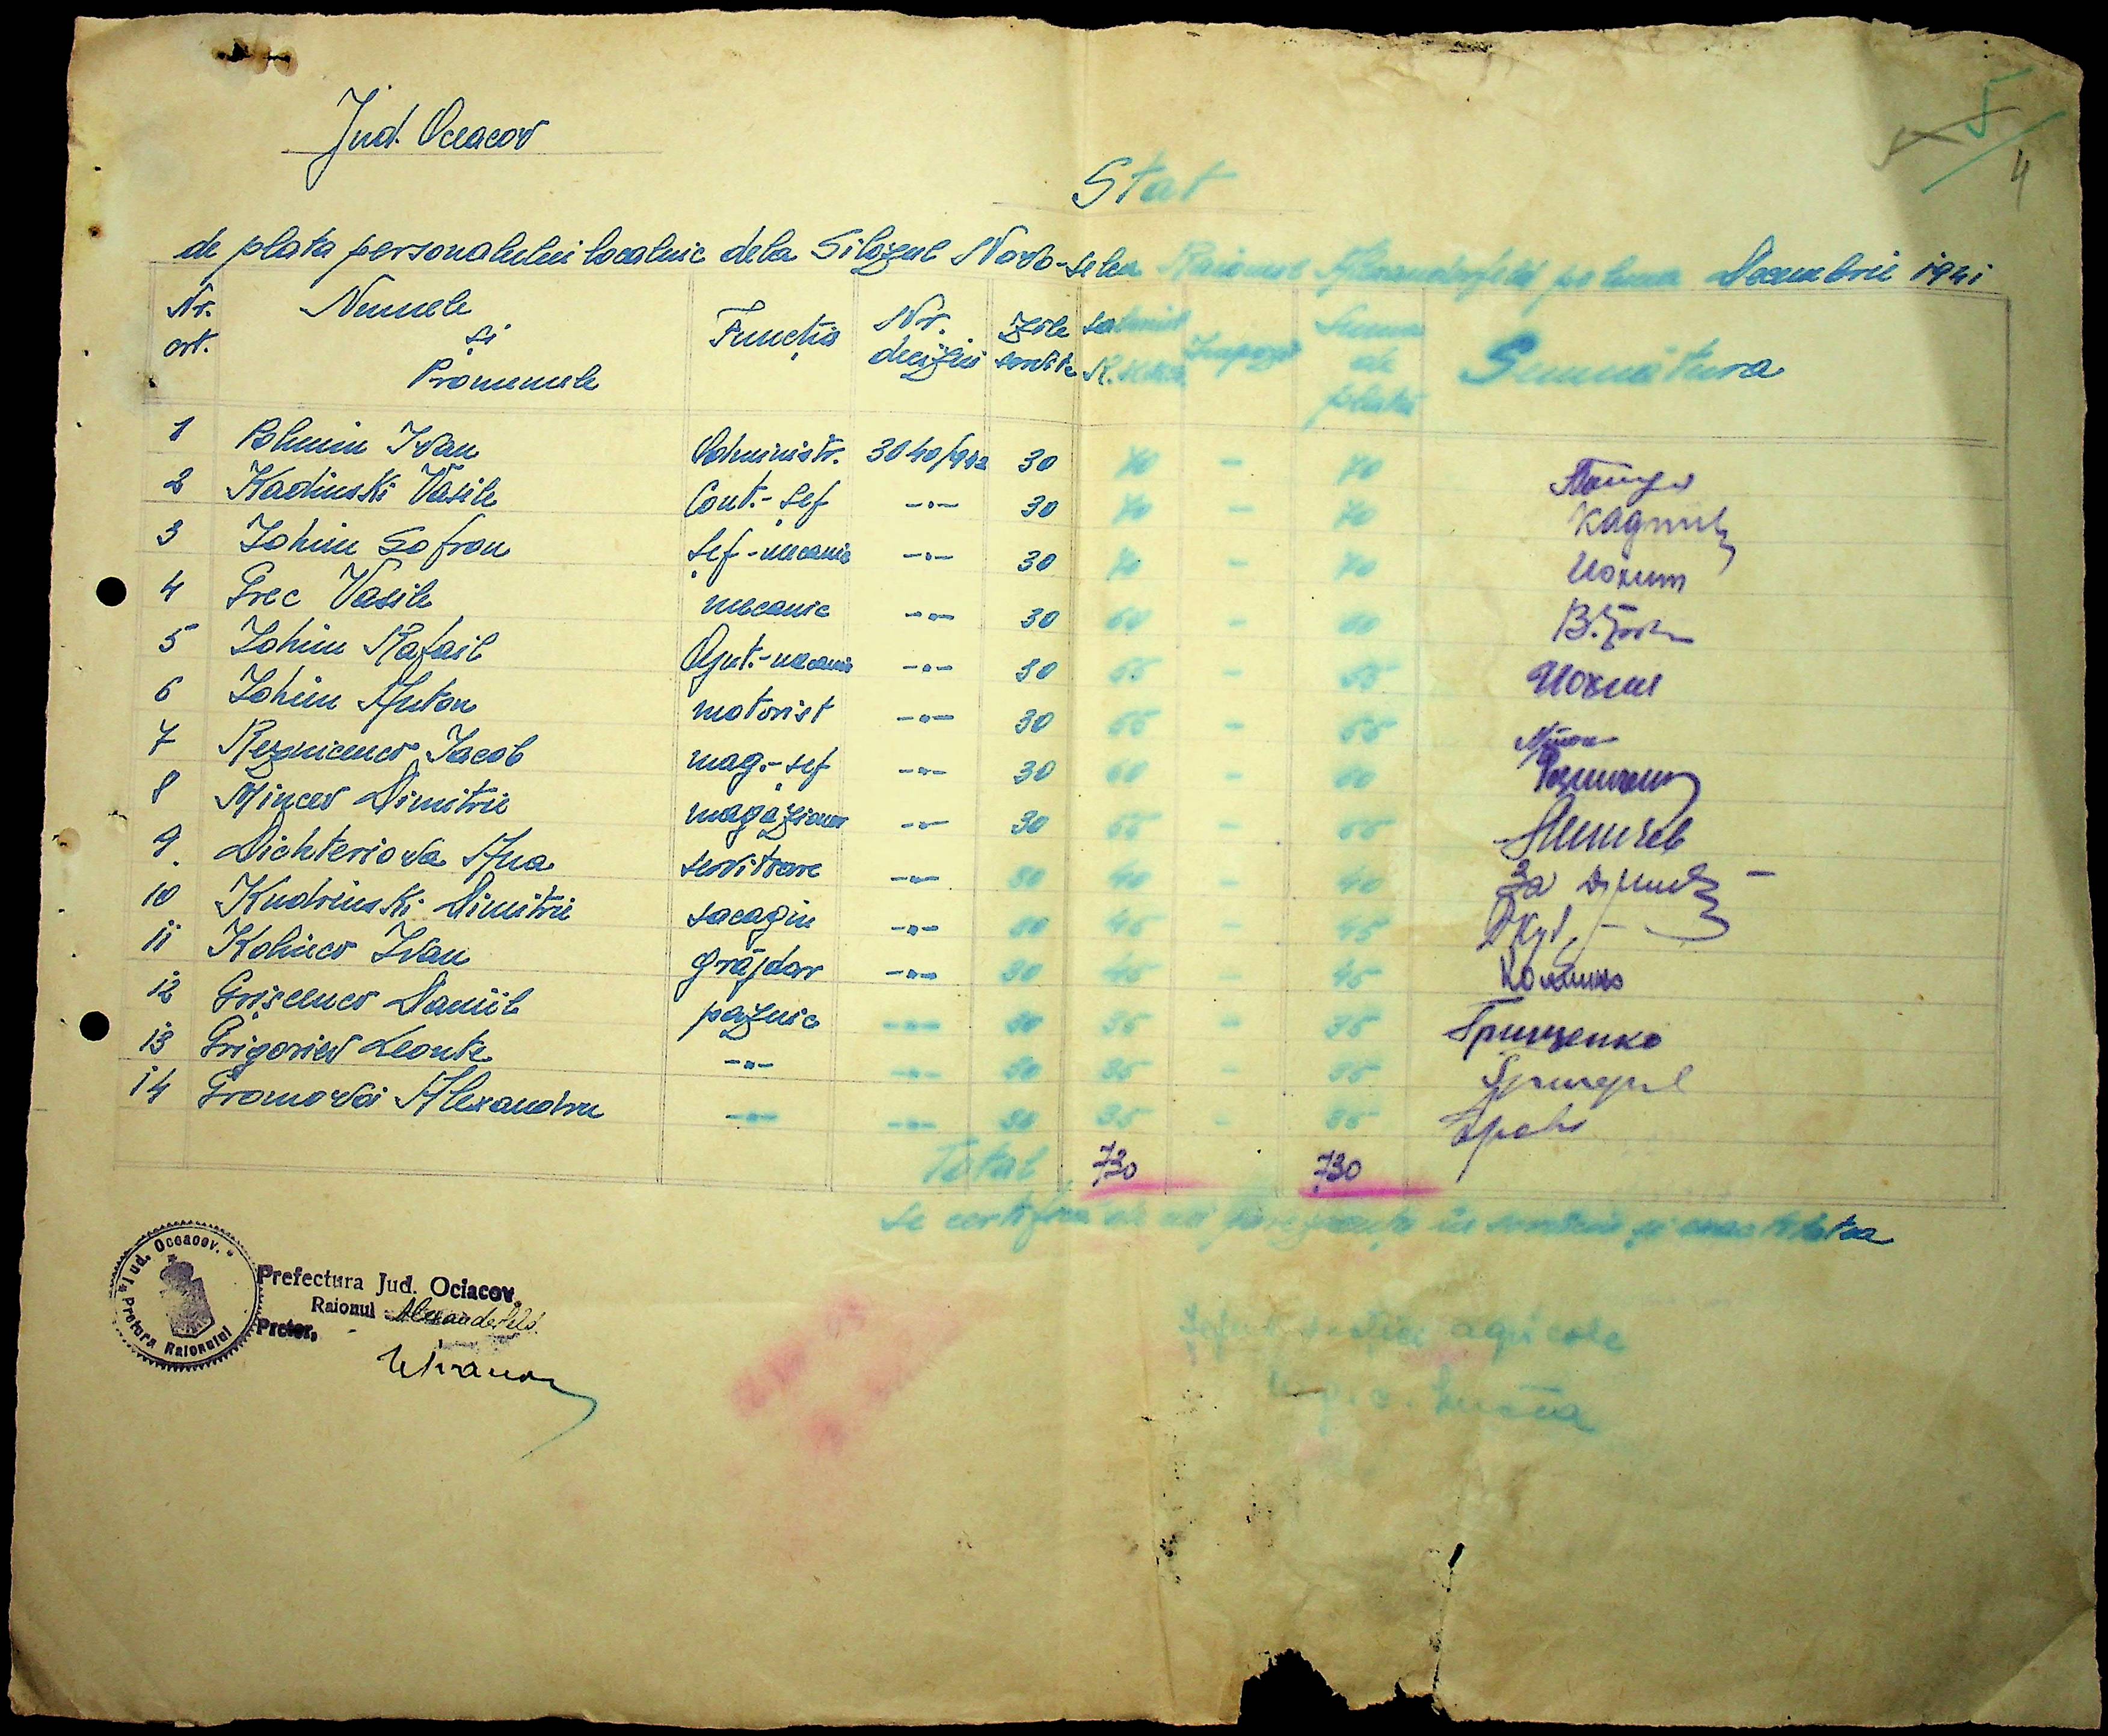 5
4
Jud. Oceacov
Stat
de plata personalului localnic dela Silozul Novo-selca Raionul Alexanderfeld pe luna Decembrie 1941
Nr. crt. Numele și Pronumele Funcția Nr. deciziei Zile servite Salariul Impozit Suma de plată Semnătura
1 Ivan Administr. 3040/942 30 70 - 70
2 Kadinski Vasile Cont.-șef -"- 30 70 - 70
3 Iohim Sofron șef-mecanic -"- 30 70 - 70 Иохим
4 Grec Vasile mecanic -"- 30 60 - 60
5 Iohim Rafail Ajut.-mecanic -"- 30 55 - 55 Иохим
6 Iohim Anton motorist -"- 30 55 - 55
7 Reznicenco Iacob mag.-șef -"- 30 60 - 60
8 Mincev Dimitrie magazioner -"- 30 55 - 55 Минчев
9. Dichteriova Ana servitoare -"- 30 40 - 40
10 Kudrinski Dimitrie sacagiu -"- 30 45 - 45
11 Ivan grăjdar -"- 30 45 - 45
12 Grișcenco Daniil paznic -"- 30 35 - 35 Грищенко
13 Grigoriev Leonte -"- -"- 30 35 - 35
14 Gromovoi Alexandru -"- -"- 30 35 - 35
Total 730 730
Se certifică de noi prezența în serviciu și exactitatea
Jud. Oceacov.
Pretura Raionului
Prefectura Jud. Ociacov.
Raionul Alexanderfeld
Pretor,
Șeful secției agricole